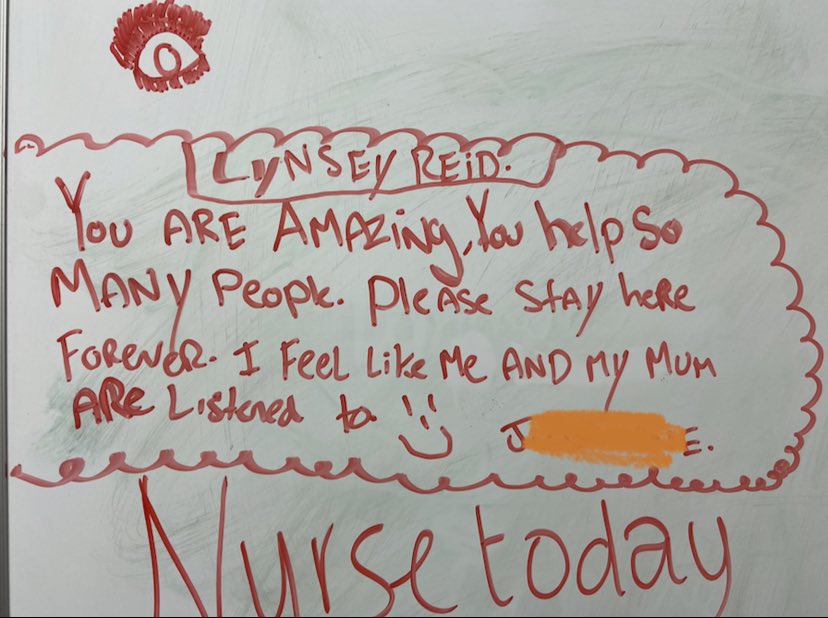 LyNSEy REiD.
You ARE AMAZing, You help So
MANy People. Please Stay here
Forever. I Feel Like Me AND My Mum
ARe Listened to. :)
J E.
Nurse today